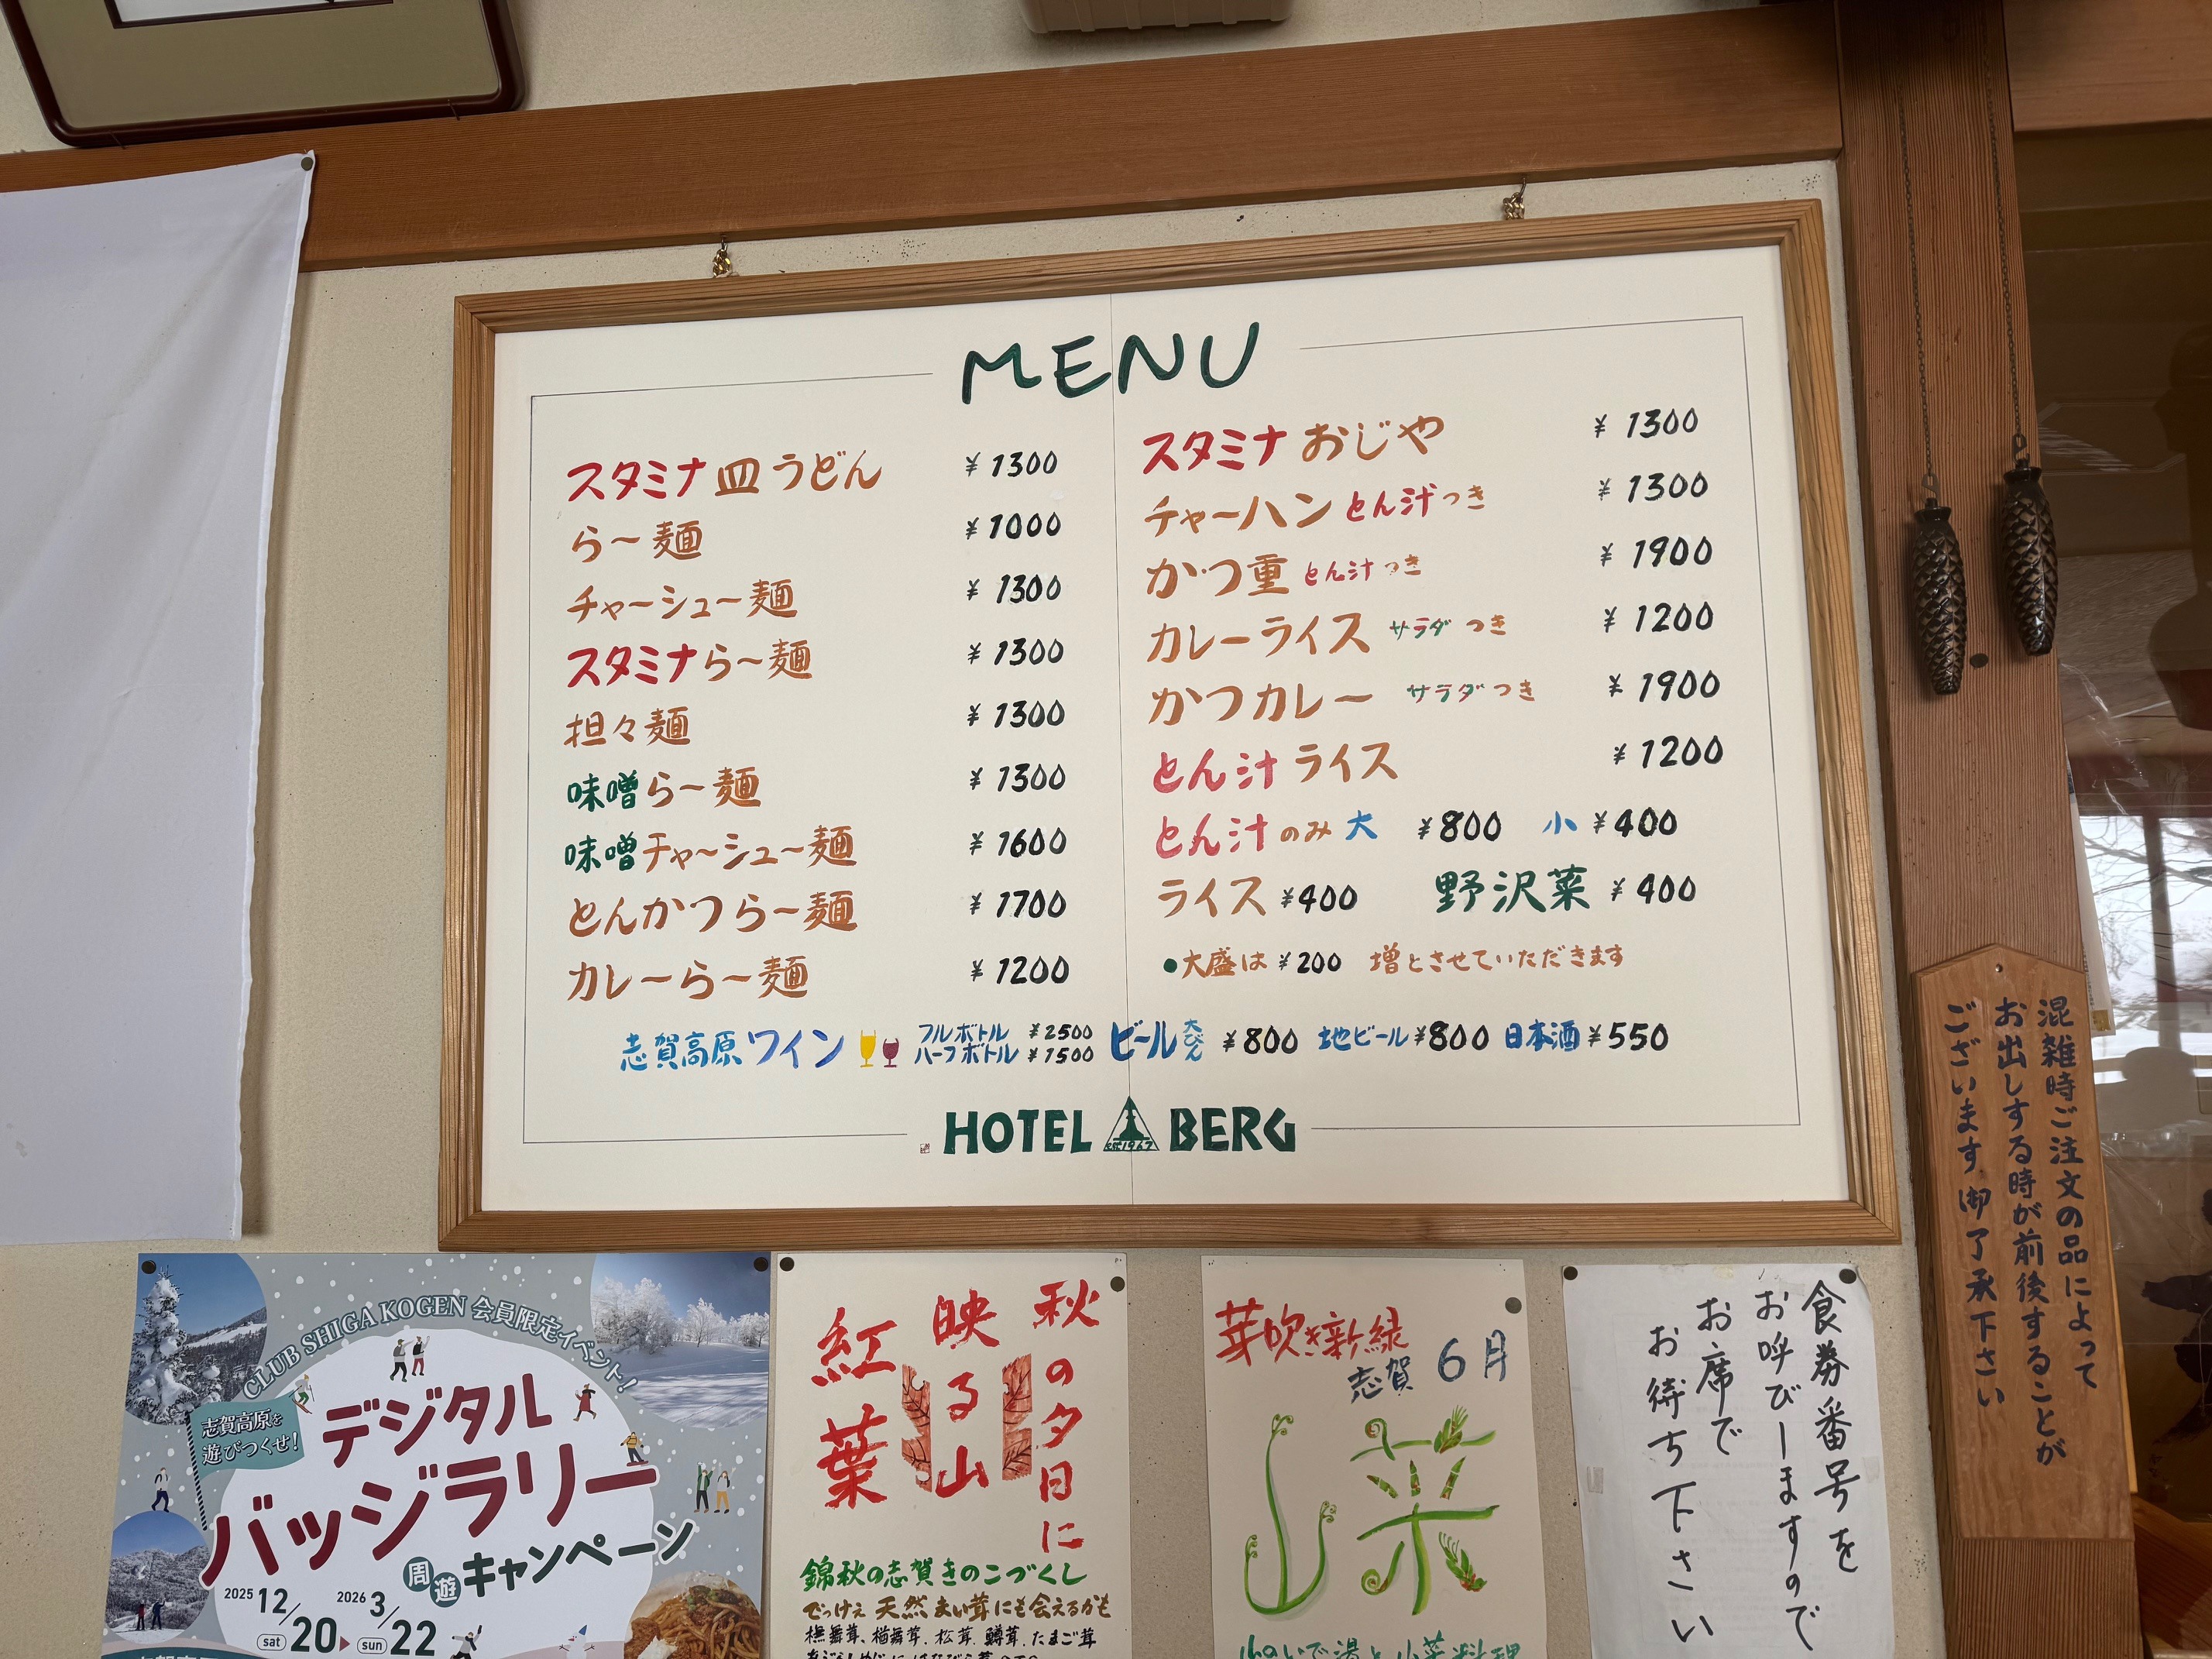 MENU
スタミナ皿うどん ¥1300
ら〜麺 ¥1000
チャーシュー麺 ¥1300
スタミナら〜麺 ¥1300
担々麺 ¥1300
味噌ら〜麺 ¥1300
味噌チャーシュー麺 ¥1600
とんかつら〜麺 ¥1700
カレーら〜麺 ¥1200
スタミナおじや ¥1300
チャーハン とん汁つき ¥1300
かつ重 とん汁つき ¥1900
カレーライス サラダつき ¥1200
かつカレー サラダつき ¥1900
とん汁ライス ¥1200
とん汁のみ 大 ¥800 小 ¥400
ライス ¥400 野沢菜 ¥400
●大盛は¥200 増とさせていただきます
志賀高原ワイン フルボトル ¥2500
ハーフボトル ¥1500
ビール 大びん ¥800 地ビール ¥800 日本酒 ¥550
HOTEL BERG
混雑時ご注文の品によって
お出しする時が前後することが
ございます 御了承下さい
CLUB SHIGA KOGEN 会員限定イベント!
志賀高原を
遊びつくせ!
デジタル
バッジラリー
周遊キャンペーン
2025 12/20 sat ▶ 2026 3/22 sun
秋の夕日に
映る山
紅葉
錦秋の志賀きのこづくし
でっけえ 天然まい茸にも会えるかも
芽吹き新緑
志賀 6月
山菜
食券番号を
お呼びしますので
お席で
お待ち下さい